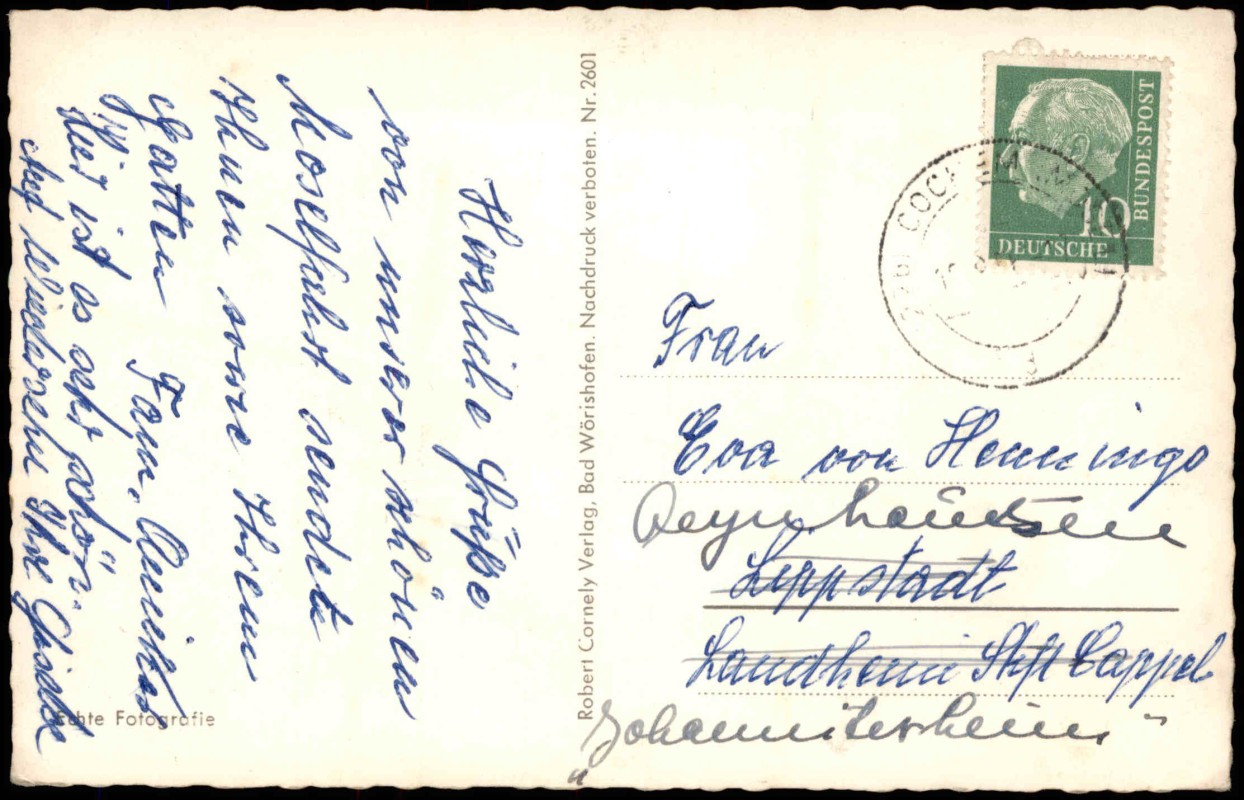 Herzliche Grüße
von unserer schönen
Moselfahrt sendet
Ihnen sowie Ihrem
Gatten Fam.
Hier ist es sehr schön.
Auf Wiedersehn Ihre
Echte Fotografie
Robert Cornely Verlag, Bad Wörishofen. Nachdruck verboten. Nr. 2601
DEUTSCHE
BUNDESPOST
10
COCHEM
Frau
Eva von Hennings
Oeynhausen
Lippstadt
Landheim Stift Cappel
"Johanniterheim"